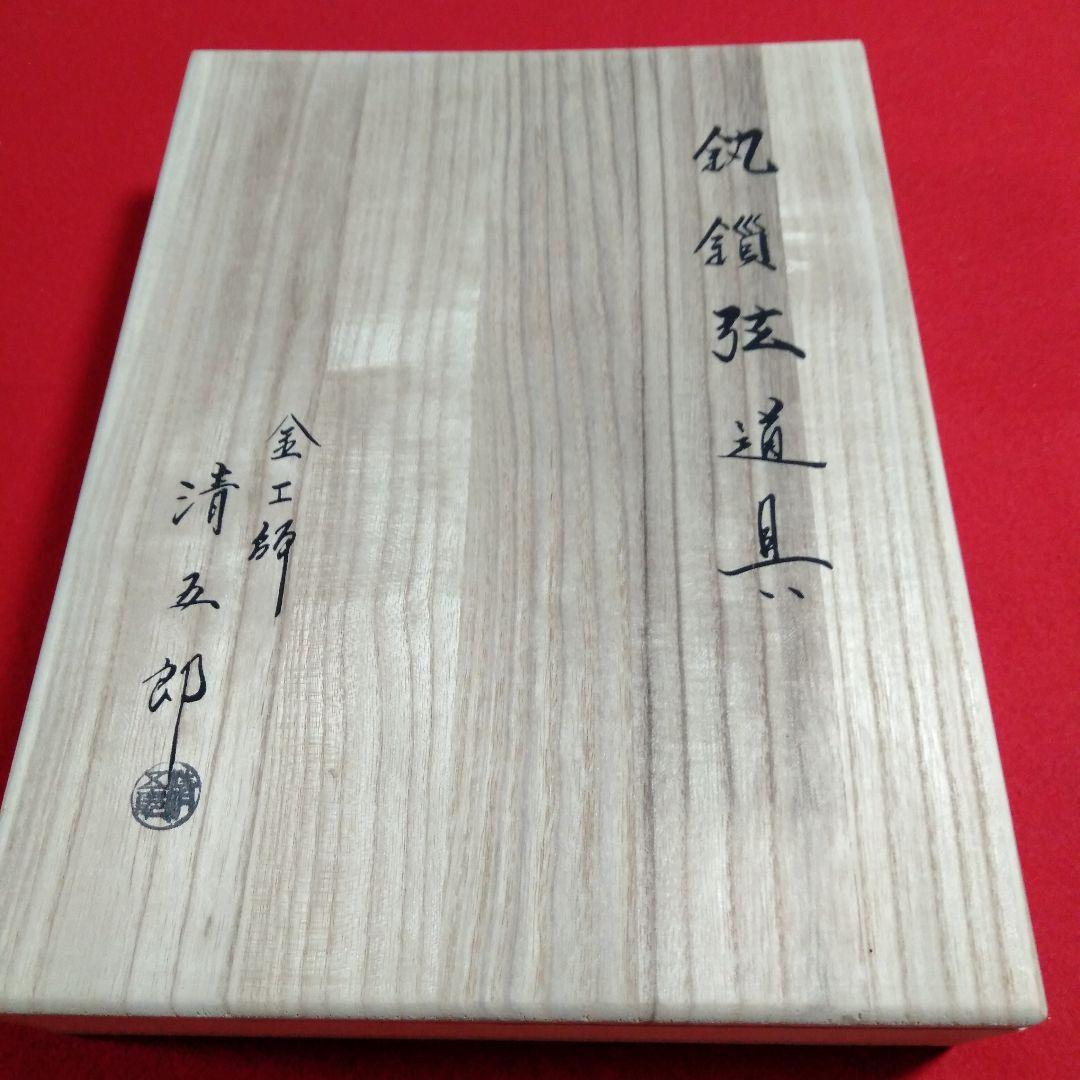 釻鎻弦道具
金工師
清五郎